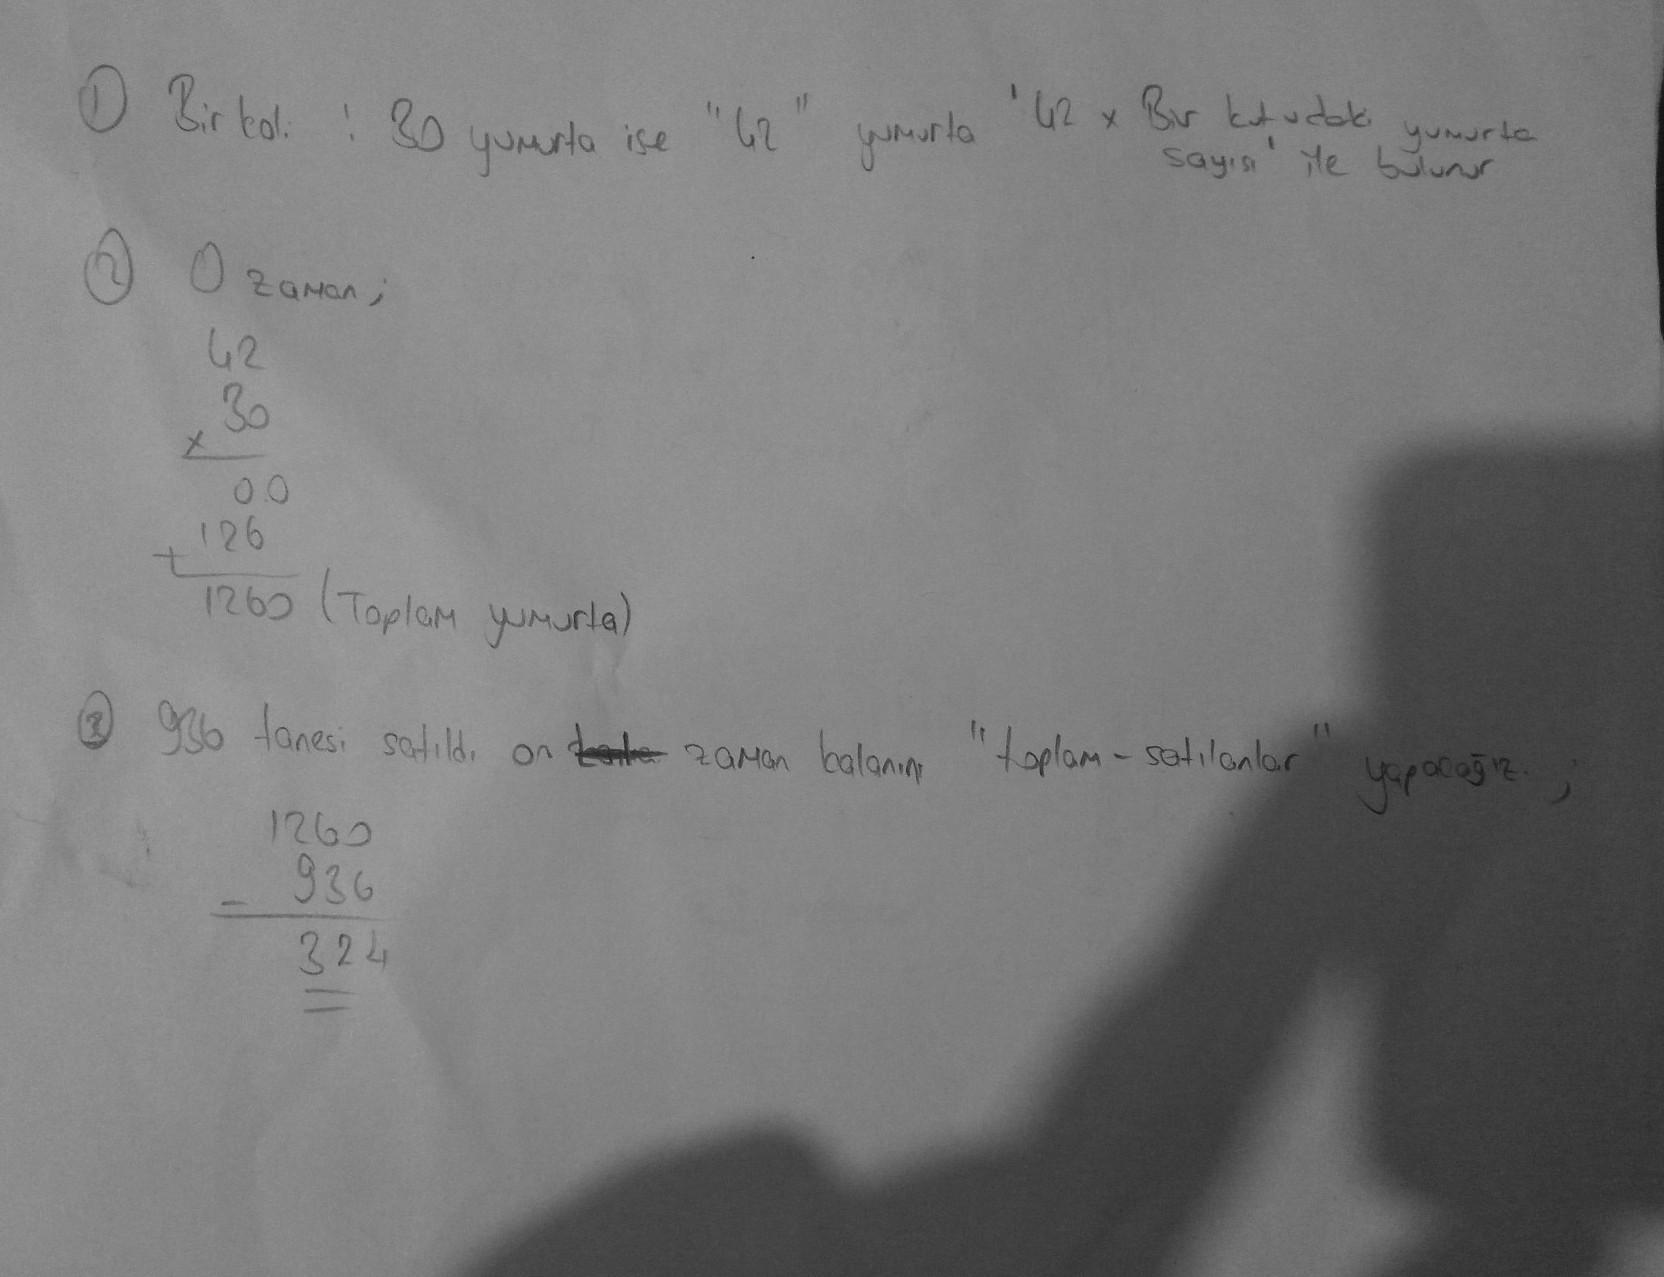 ① Bir koli : 30 yumurta ise "42" yumurta '42 x Bir kutudaki yumurta
sayısı' ile bulunur
② O zaman;
42
30
x
00
126
+
1260 (Toplam yumurta)
③ 936 tanesi satıldı on zaman kalanını "toplam - satılanlar" yapacağız. ;
1260
936
-
324